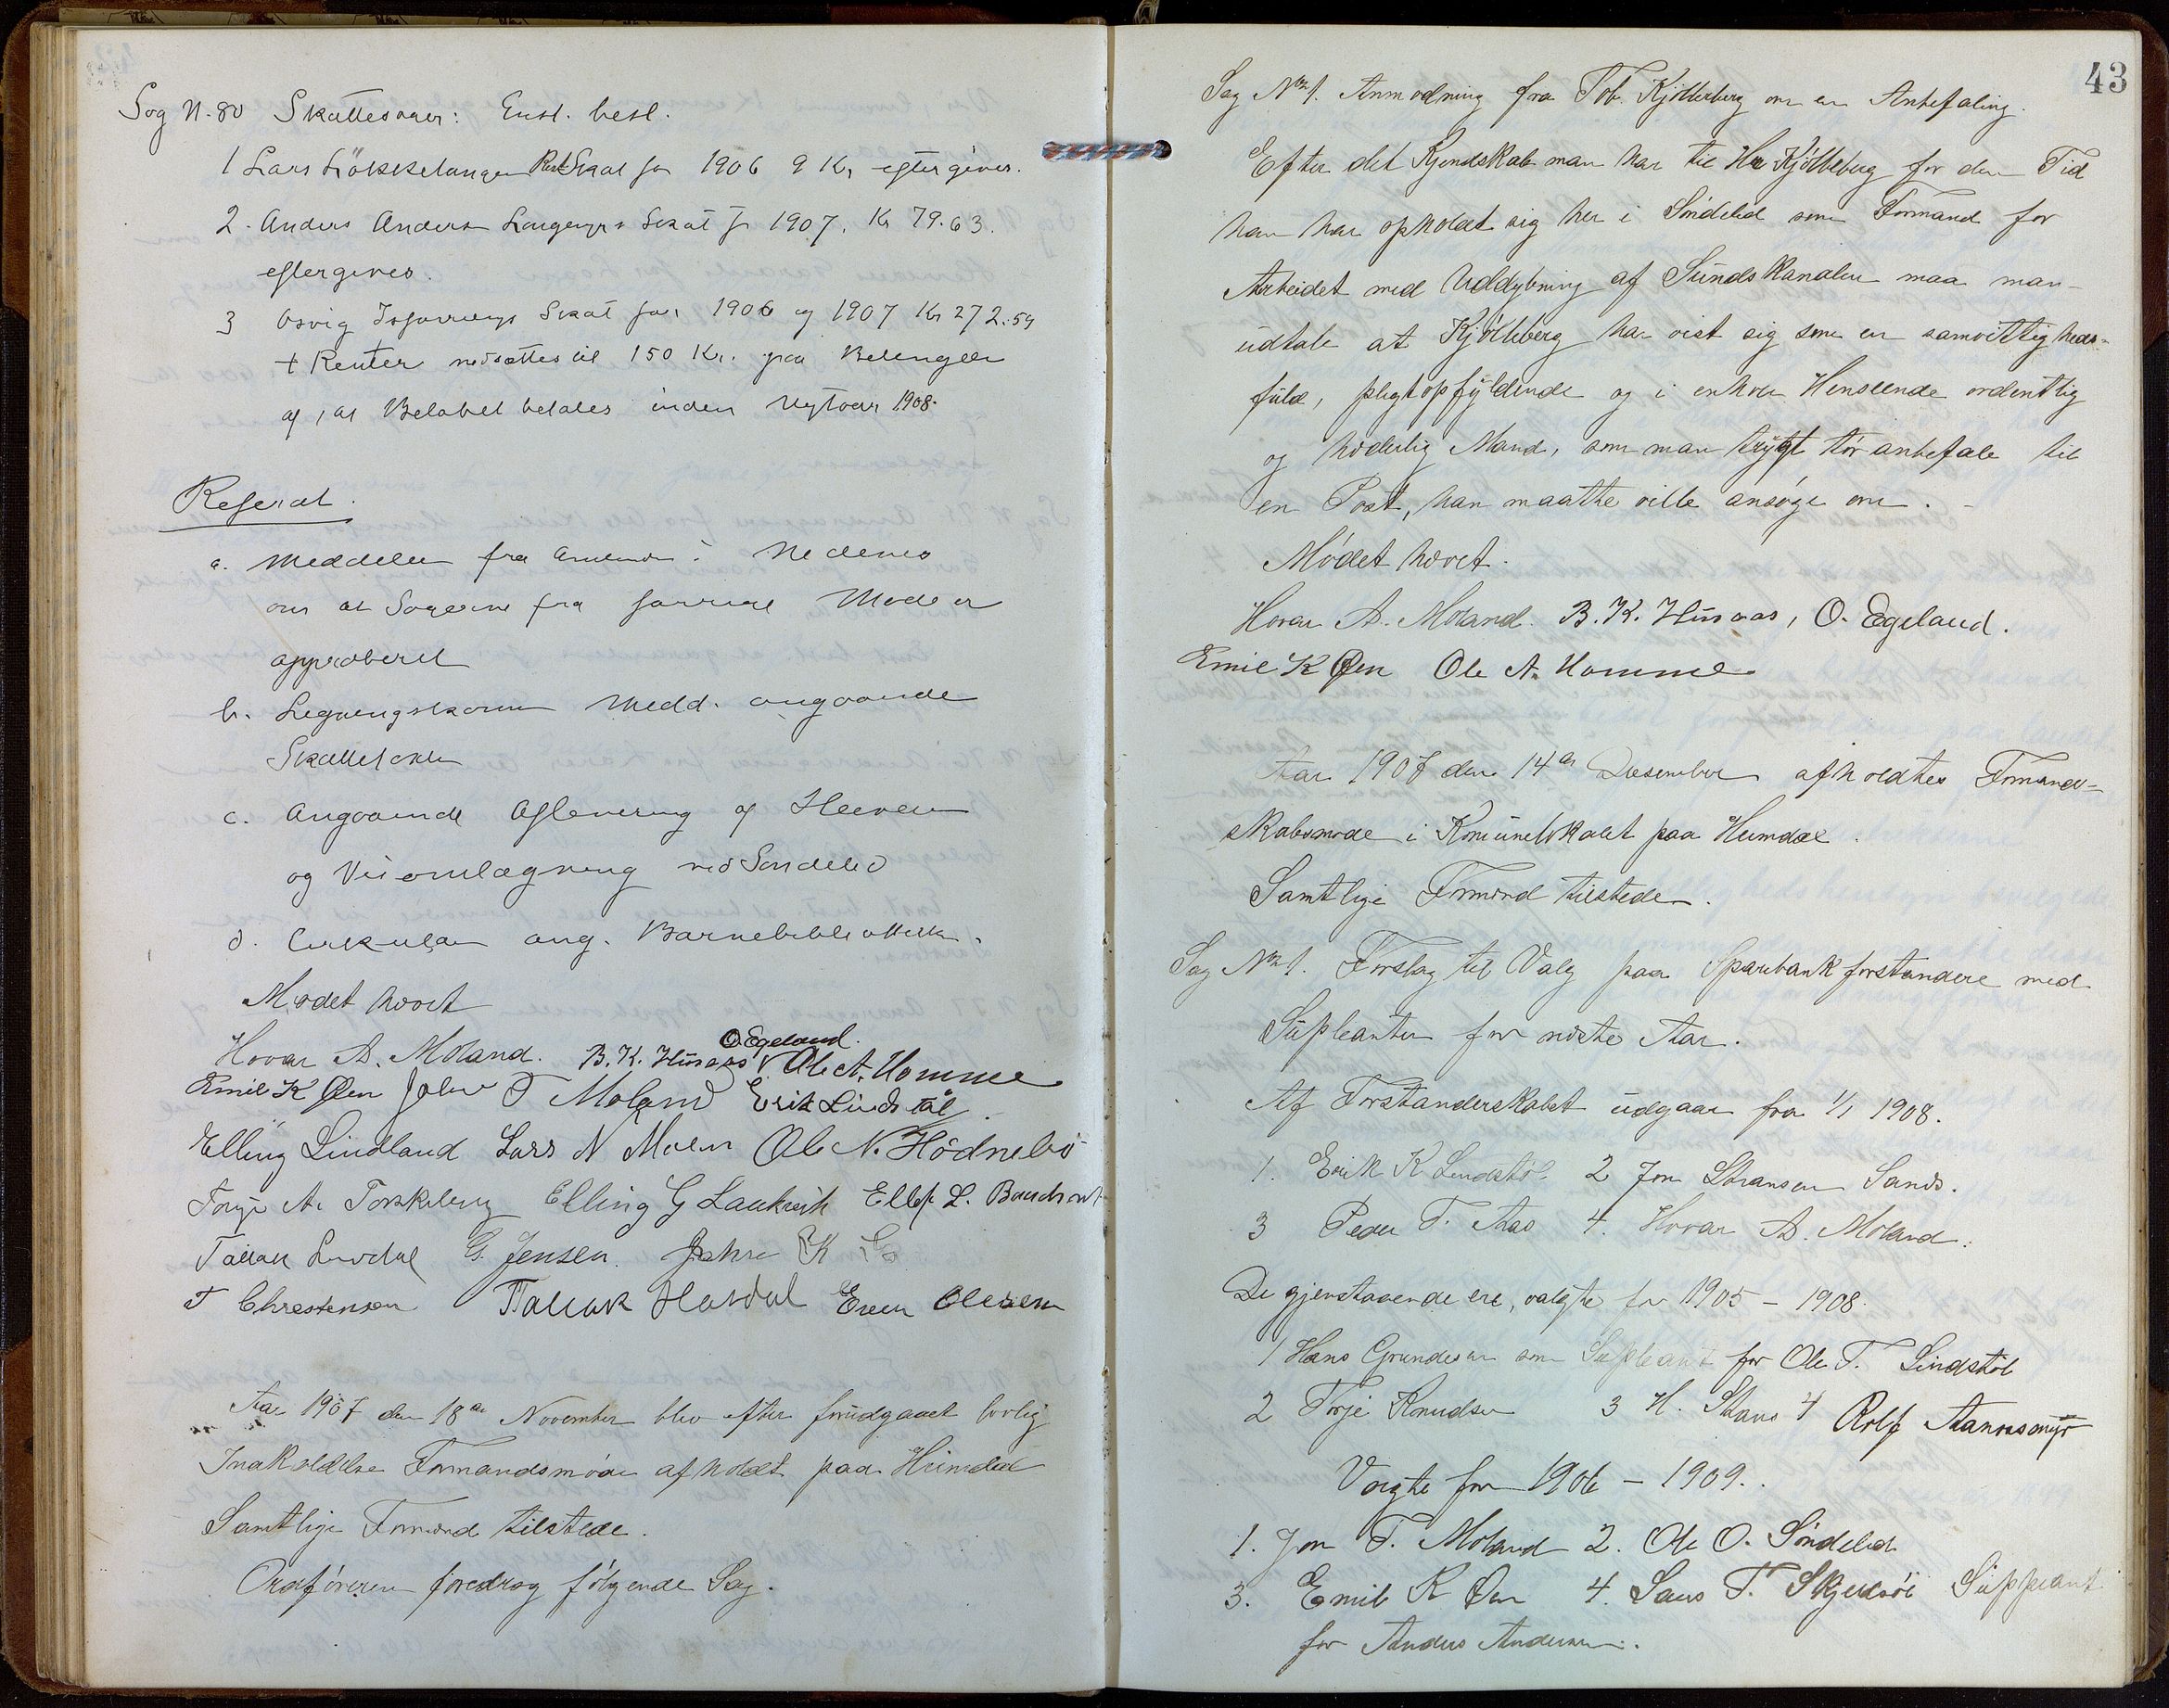 Sag N. 80 Skattesager: Enst. besl.
1 Lars Lökkelangen Rest Skat for 1906 9 Kr eftergives.
2. Anders Anders Langmyrs Skat f 1907. Kr 79.63.
eftergives.
3 Osvig Isforrengs Skat for 1906 og 1907 Kr 272.59
+ Renter nedsættes til 150 Kr. paa Betingelse
af, at Beløbet betales inden Nytaar 1908.
Referat.
a. Meddelelse fra Amtmanden i Nedenes
om at Sagerne fra forrige Møde er
approberet
b. Ligningskomm Medd. angaaende
c. Angaaende Aflevering af
og Veiomlægning ved Søndeled
d. Cirkulær ang. Barnebibliothek.
Mødet hævet
O Egeland.
Hovar A. Moland. B. K. Husaas Ole A. Homme
Emil K Øen John T Moland Erik Lindstøl.
Elling Lindland Lars N Moen Ole N. Hødnebø
Torje A. Torskeberg Elling G Laukvik Ellef L.
Tallak Lindal G. Jensen. John K
T Chrestensen Tallak Hasdal Even Olessen
Aar 1907 den 18de November blev efter forudgaaet lovlig
Indkaldelse Formandsmøde afholdt paa Heimdal
Samtlige Formænd tilstede.
Ordføreren foredrog følgende Sag.
43
Sag No 1. Anmodning fra Tob. Kjölleberg om en Anbefaling.
Efter det Kjendskab man har til Hr Kjölleberg for den Tid
han har opholdt sig her i Söndeled som Formand for
Arbeidet med Uddybning af Sundskanalen maa man
udtale at Kjölleberg har vist sig som en samvittigheds-
fuld, pligtopfyldende og i enhver Henseende ordentlig
og hæderlig Mand, som man trygt tør anbefale til
en Post, han maatte ville ansøge om.
Mödet hævet.
Hovar A. Moland. B. K. Husaas, O. Egeland.
Emil K Øen Ole A. Homme
Aar 1907 den 14de Desember afholdtes Formand-
skabsmøde i Komunelokalet paa Heimdal.
Samtlige Formænd tilstede.
Sag No 1. Forslag til Valg paa Sparebankforstandere med
Supleanter for næste Aar.
Af Forstanderskabet udgaar fra 1/1 1908.
1. Erik K Lindstøl 2 Jon Stiansen Sands.
3 Peder T. Aas 4. Hovar A. Moland.
De gjenstaaende ere, valgte for 1905 – 1908.
1 Hans Gundesen som Supleant for Ole T. Lindstøl
2 Torje Knudsen 3 H. Stans 4 Rolf Aanonsmyr
Valgte for 1906 – 1909.
1. Jon T. Moland 2. Ole O. Söndeled
3. Emil K Øen 4. Lars T. Skjelsöl Suppleant
for Anders Andersen.